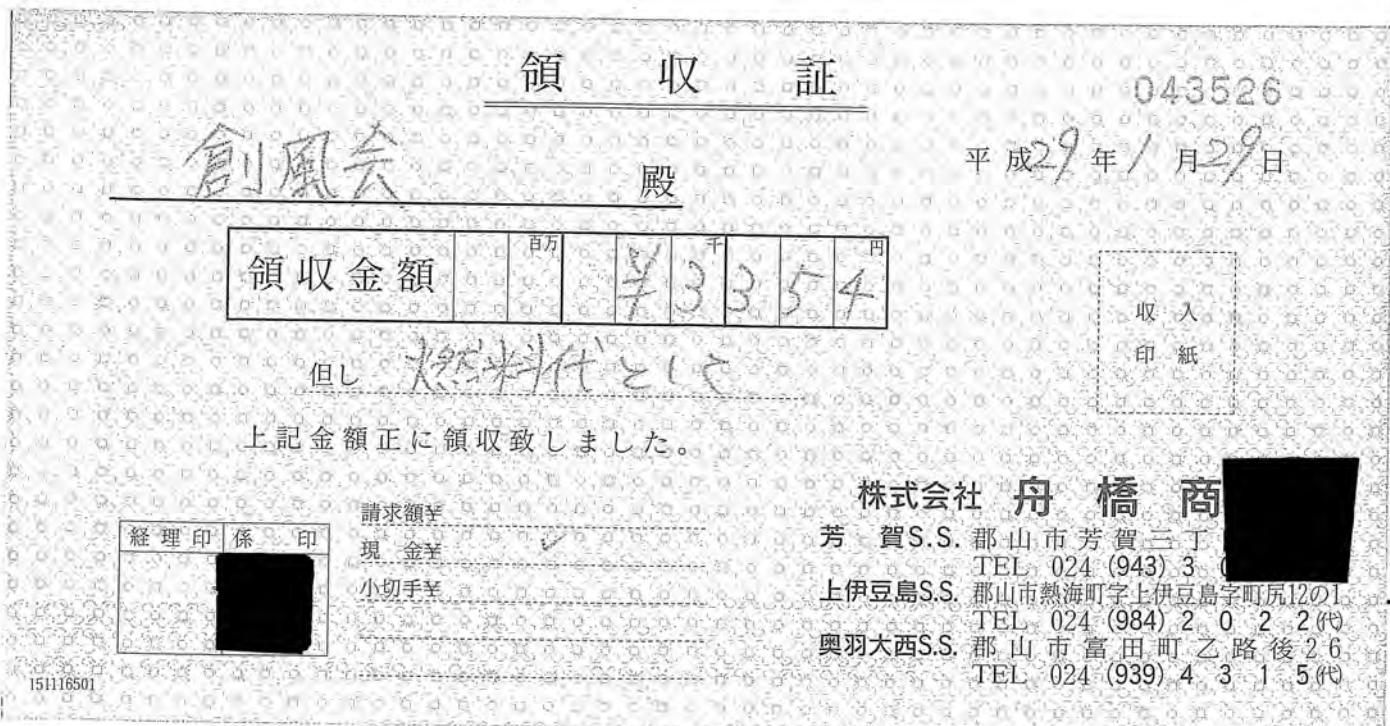 領収証
043526
創風会 殿
平成29年1月29日
領収金額 百万 千 円
¥3354
但し 燃料代として
収入
印紙
上記金額正に領収致しました。
経理印 係印
請求額¥
現金¥ ✓
小切手¥
株式会社 舟橋商
芳賀S.S. 郡山市芳賀三丁
TEL 024 (943) 3
上伊豆島S.S. 郡山市熱海町字上伊豆島字町尻12の1
TEL 024 (984) 2022㈹
奥羽大西S.S. 郡山市富田町乙路後26
TEL 024 (939) 4315㈹
151116501